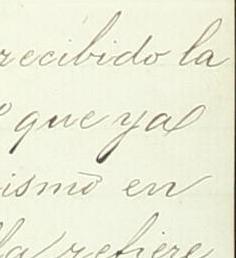 recibido la
que ya
ismo en
la refiere